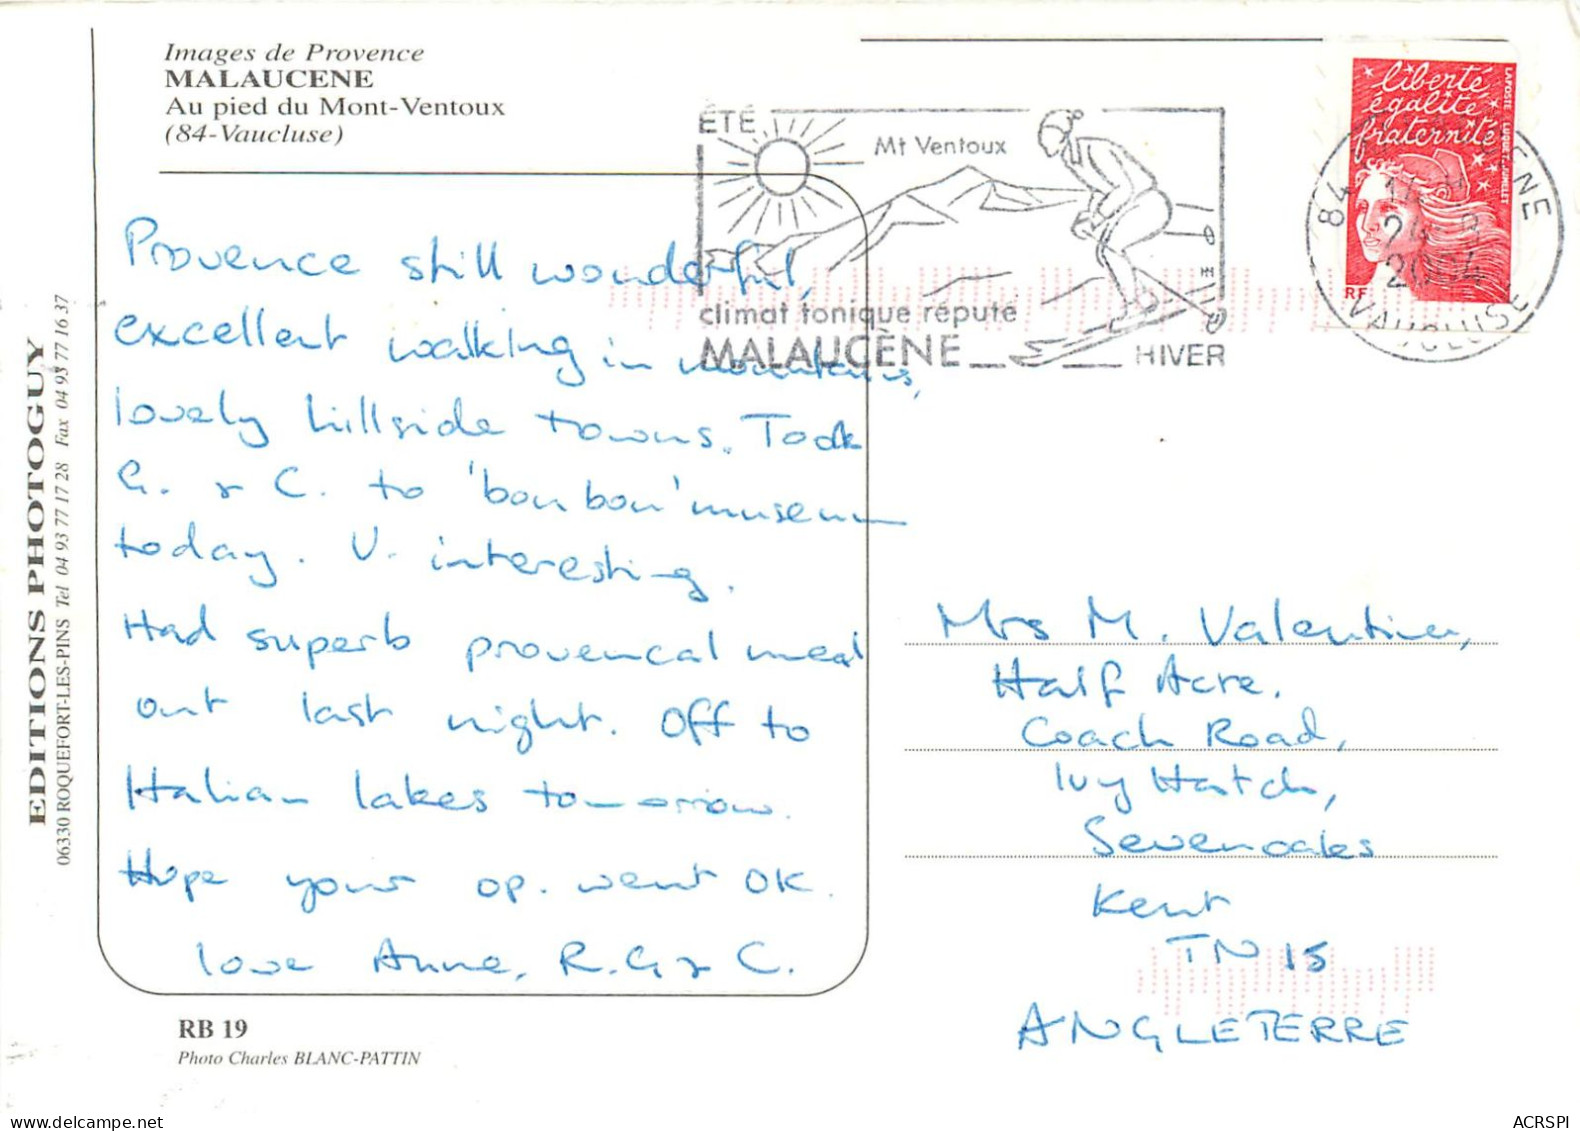 Images de Provence
MALAUCENE
Au pied du Mont-Ventoux
(84-Vaucluse)
ÉTÉ
Mt Ventoux
climat tonique réputé
MALAUCÈNE
HIVER
liberté
égalité
fraternité
LAPOSTE LUQUET.JUMELET
RF
84
ENE
14 H
24
2004
VAUCLUSE
Provence still wonderful,
excellent walking in mountains,
lovely hillside towns. Took
G. & C. to 'bon bon' museum
today. V. interesting.
Had superb provencal meal
out last night. Off to
Italian lakes tomorrow.
Hope your op. went OK.
love Anne, R. G & C.
Mrs M. Valentine,
Half Acre.
Coach Road,
Ivy Hatch,
Sevenoaks
Kent
TN 15
ANGLETERRE
EDITIONS PHOTOGUY
06330 ROQUEFORT-LES-PINS Tel 04 93 77 17 28 Fax 04 93 77 16 37
RB 19
Photo Charles BLANC-PATTIN
ACRSPI